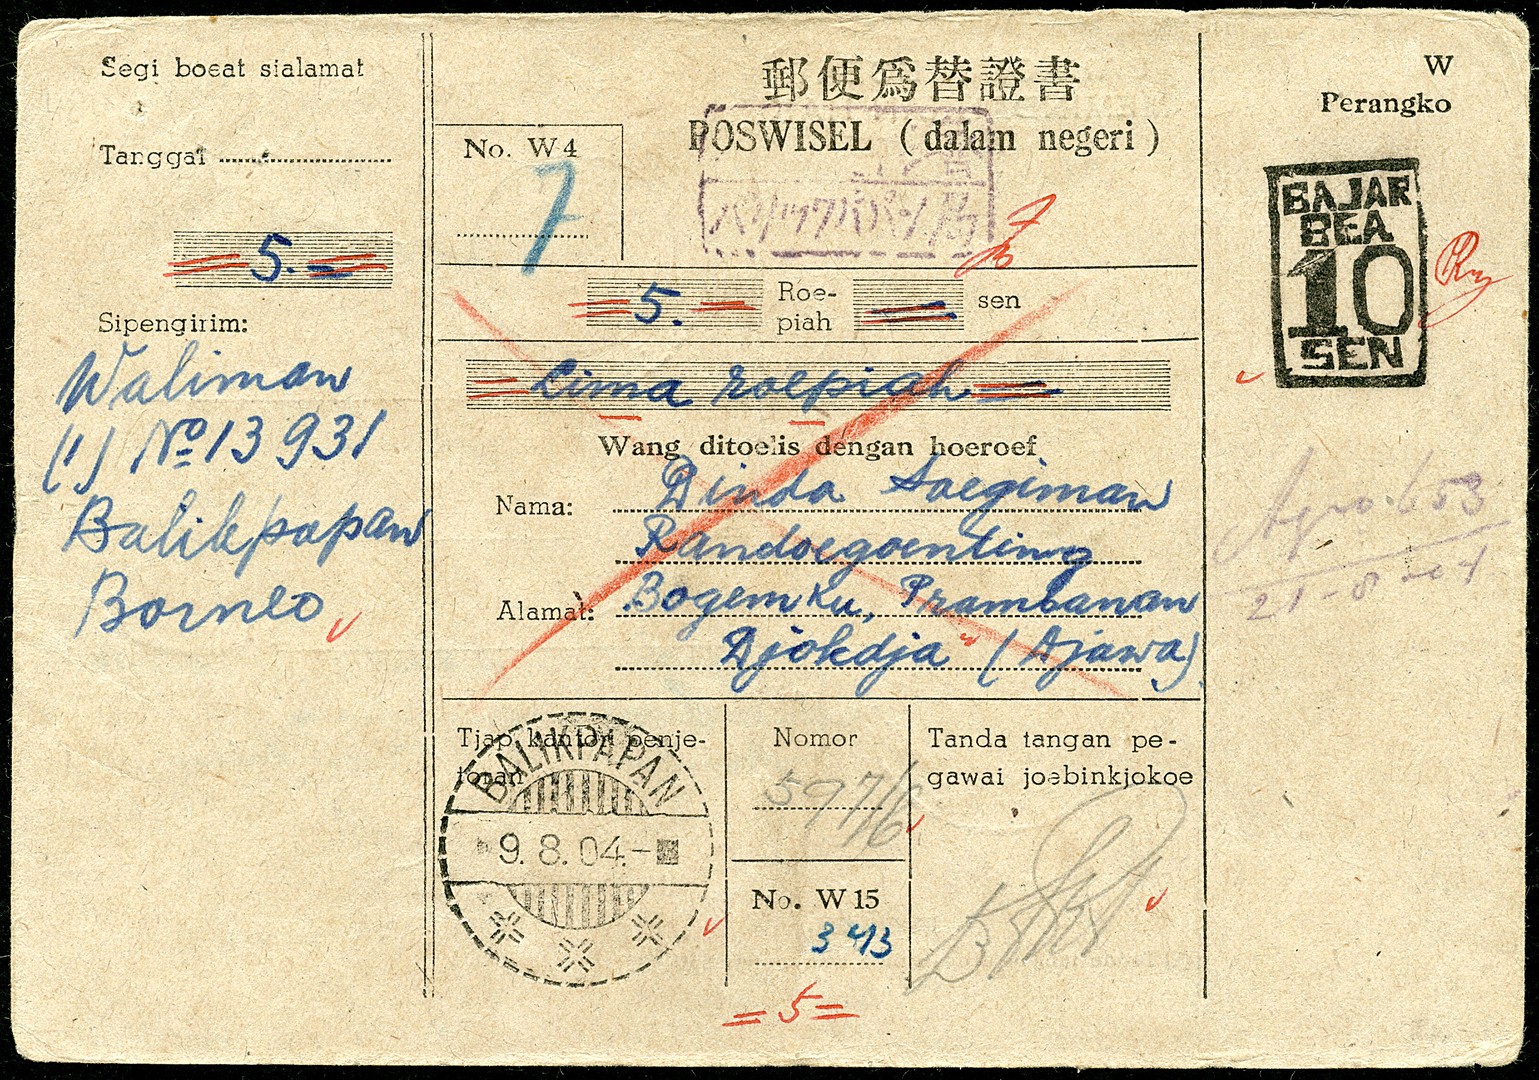 Segi boeat sialamat
Tanggal
5.-
Sipengirim:
Waliman
(1) No 13931
Balikpapan
Borneo
郵便爲替證書
POSWISEL (dalam negeri)
No. W 4
7
5. Roe-
piah
sen
Lima roepiah
Wang ditoelis dengan hoeroef
Nama: Dinda Soegiman
Randoegoenting
Alamat: Bogem ku, Prambanan
Djokdja (Djawa)
Tjap kantor penje-
toran
BALIKPAPAN
9. 8. 04.-
Nomor
597/6
No. W 15
3413
Tanda tangan pe-
gawai joebinkjokoe
=5=
W
Perangko
BAJAR
BEA
10
SEN
653
21-8-04